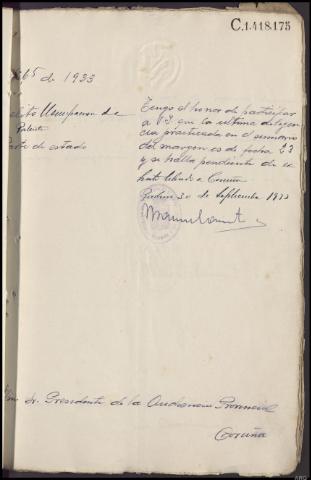 C.1.418.175
65 de 1933
Usurpación de
Parte de estado
Tengo el honor de participar
a V.I. que la ultima diligen
cia practicada en el sumario
del margen es de fecha 23
y se halla pendiente de ex
horto librado a Coruña
30 de Septiembre 1933
Sr. Presidente de la Audiencia Provincial
Coruña